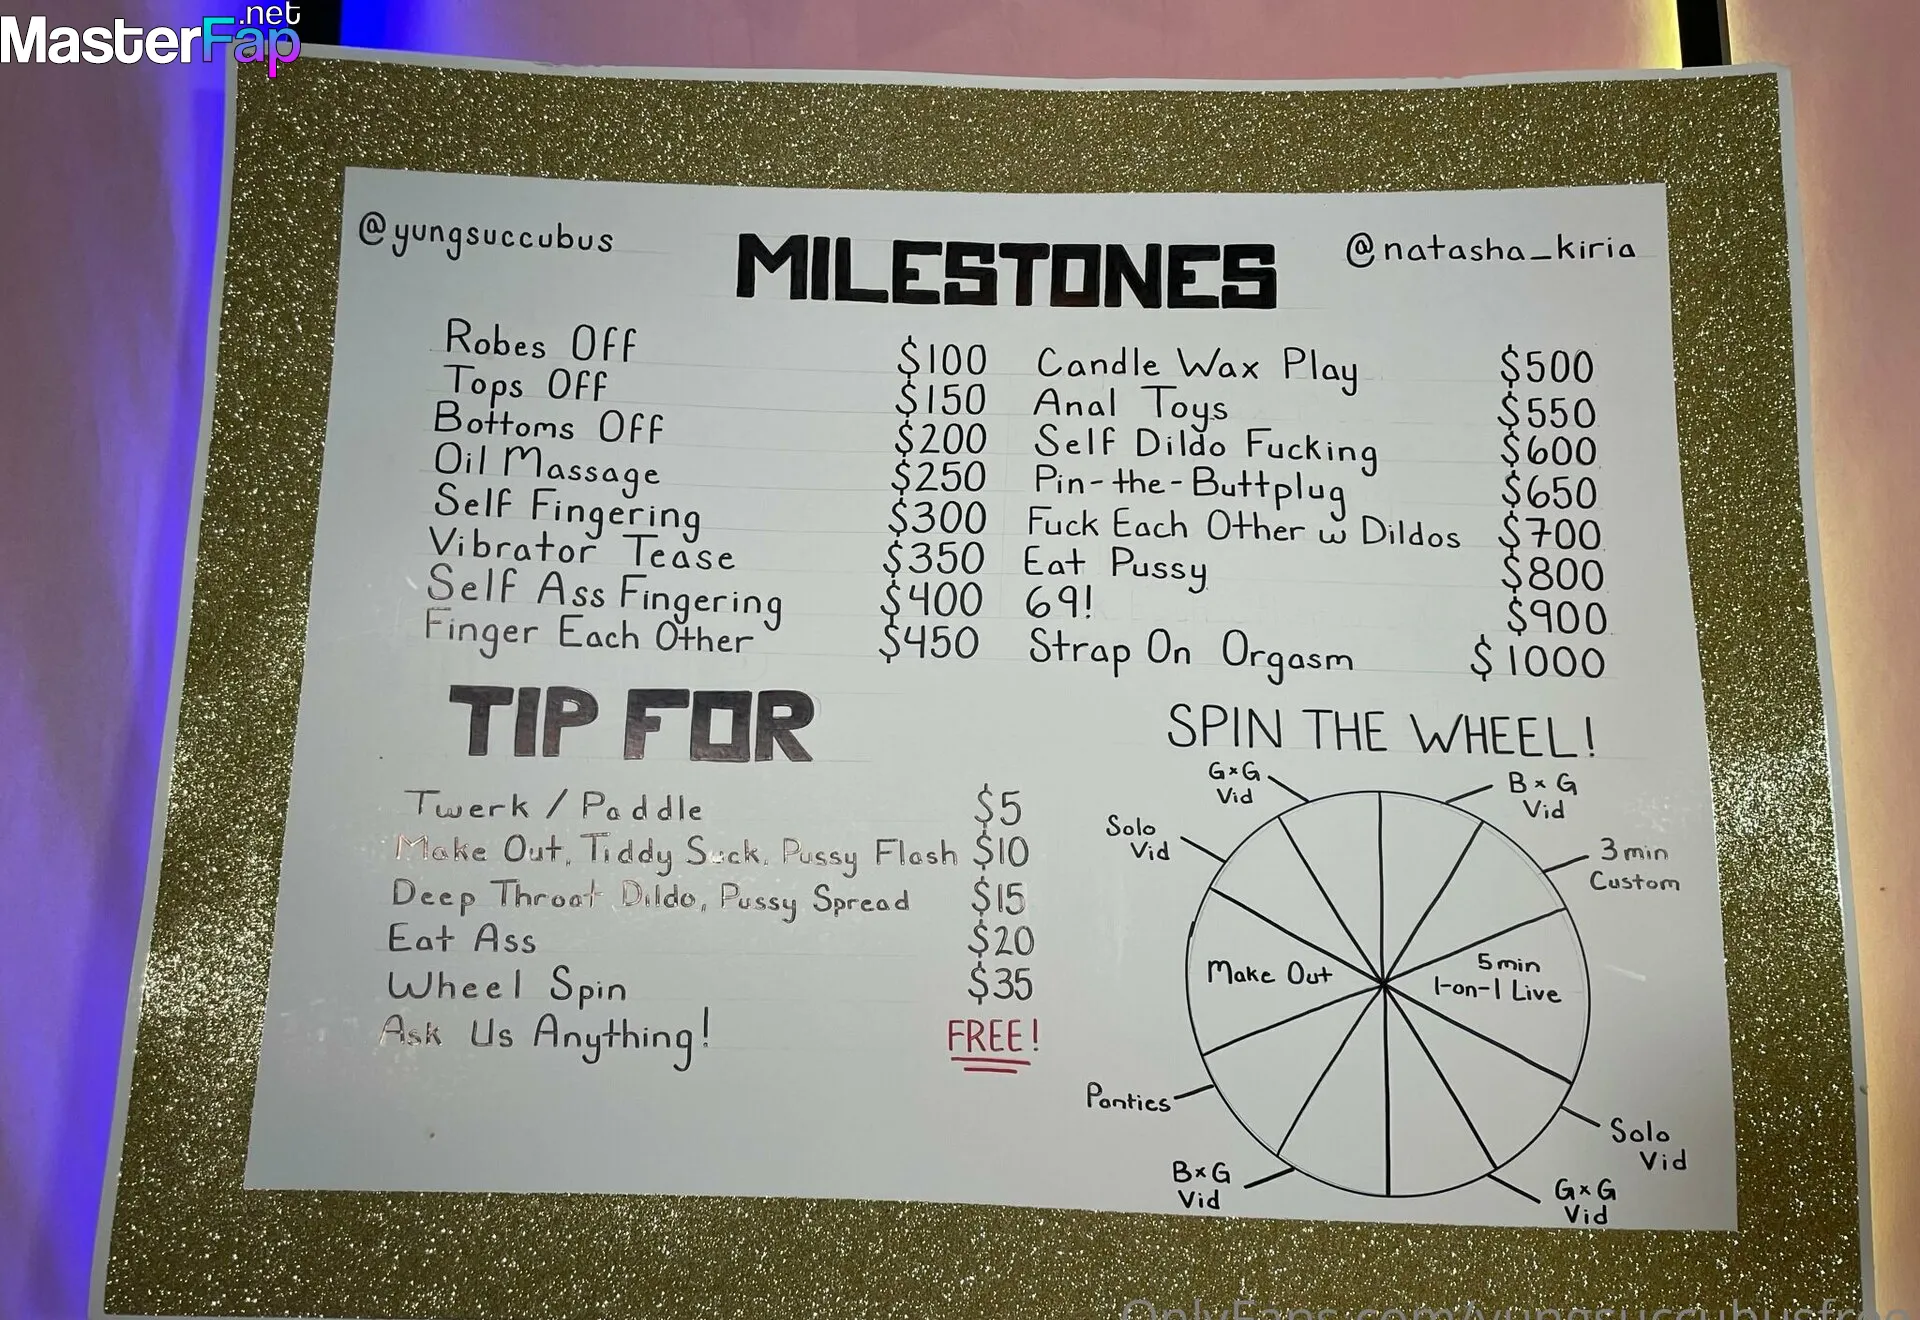 MasterFap.net
@yungsuccubus
MILESTONES
@natasha_kiria
Robes Off $100
Tops Off $150
Bottoms Off $200
Oil Massage $250
Self Fingering $300
Vibrator Tease $350
Self Ass Fingering $400
Finger Each Other $450
Candle Wax Play $500
Anal Toys $550
Self Dildo Fucking $600
Pin-the-Buttplug $650
Fuck Each Other w Dildos $700
Eat Pussy $800
69! $900
Strap On Orgasm $1000
TIP FOR
Twerk / Paddle $5
Make Out, Tiddy Suck, Pussy Flash $10
Deep Throat Dildo, Pussy Spread $15
Eat Ass $20
Wheel Spin $35
Ask Us Anything! FREE!
SPIN THE WHEEL!
GxG
Vid
BxG
Vid
Solo
Vid
3 min
Custom
Make Out
5 min
1-on-1 Live
Panties
Solo
Vid
BxG
Vid
GxG
Vid
OnlyFans.com/yungsuccubusfree